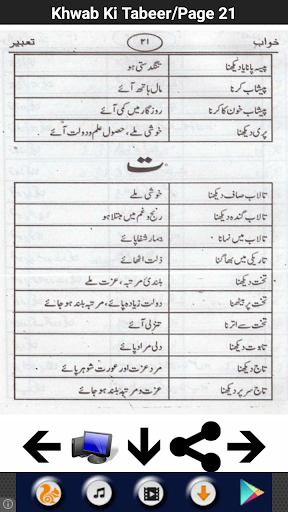 Khwab Ki Tabeer/Page 21
خواب ۲۱ تعبیر
پیسہ پانا یا دیکھنا تنگدستی ہو
پیشاب کرنا مال ہاتھ آئے
پیشاب خون کا کرنا روزگار میں کمی آئے
پری دیکھنا خوشی ملے، حصول علم و دولت آئے
ت
تالاب صاف دیکھنا خوشی ملے
تالاب گندہ دیکھنا رنج و غم میں مبتلا ہو
تالاب میں نہانا بیمار شفا پائے
تاریکی میں بھاگنا ذلت اٹھائے
تخت دیکھنا بلندی مرتبہ، عزت ملے
تخت پر بیٹھنا دولت زیادہ پائے، مرتبہ بلند ہو جائے
تخت سے اترنا تنزلی آئے
تابوت دیکھنا دلی مراد پائے
تاج دیکھنا مرد عزت اور عورت شوہر پائے
تاج سر پر دیکھنا عزت و مرتبہ بلند ہو جائے